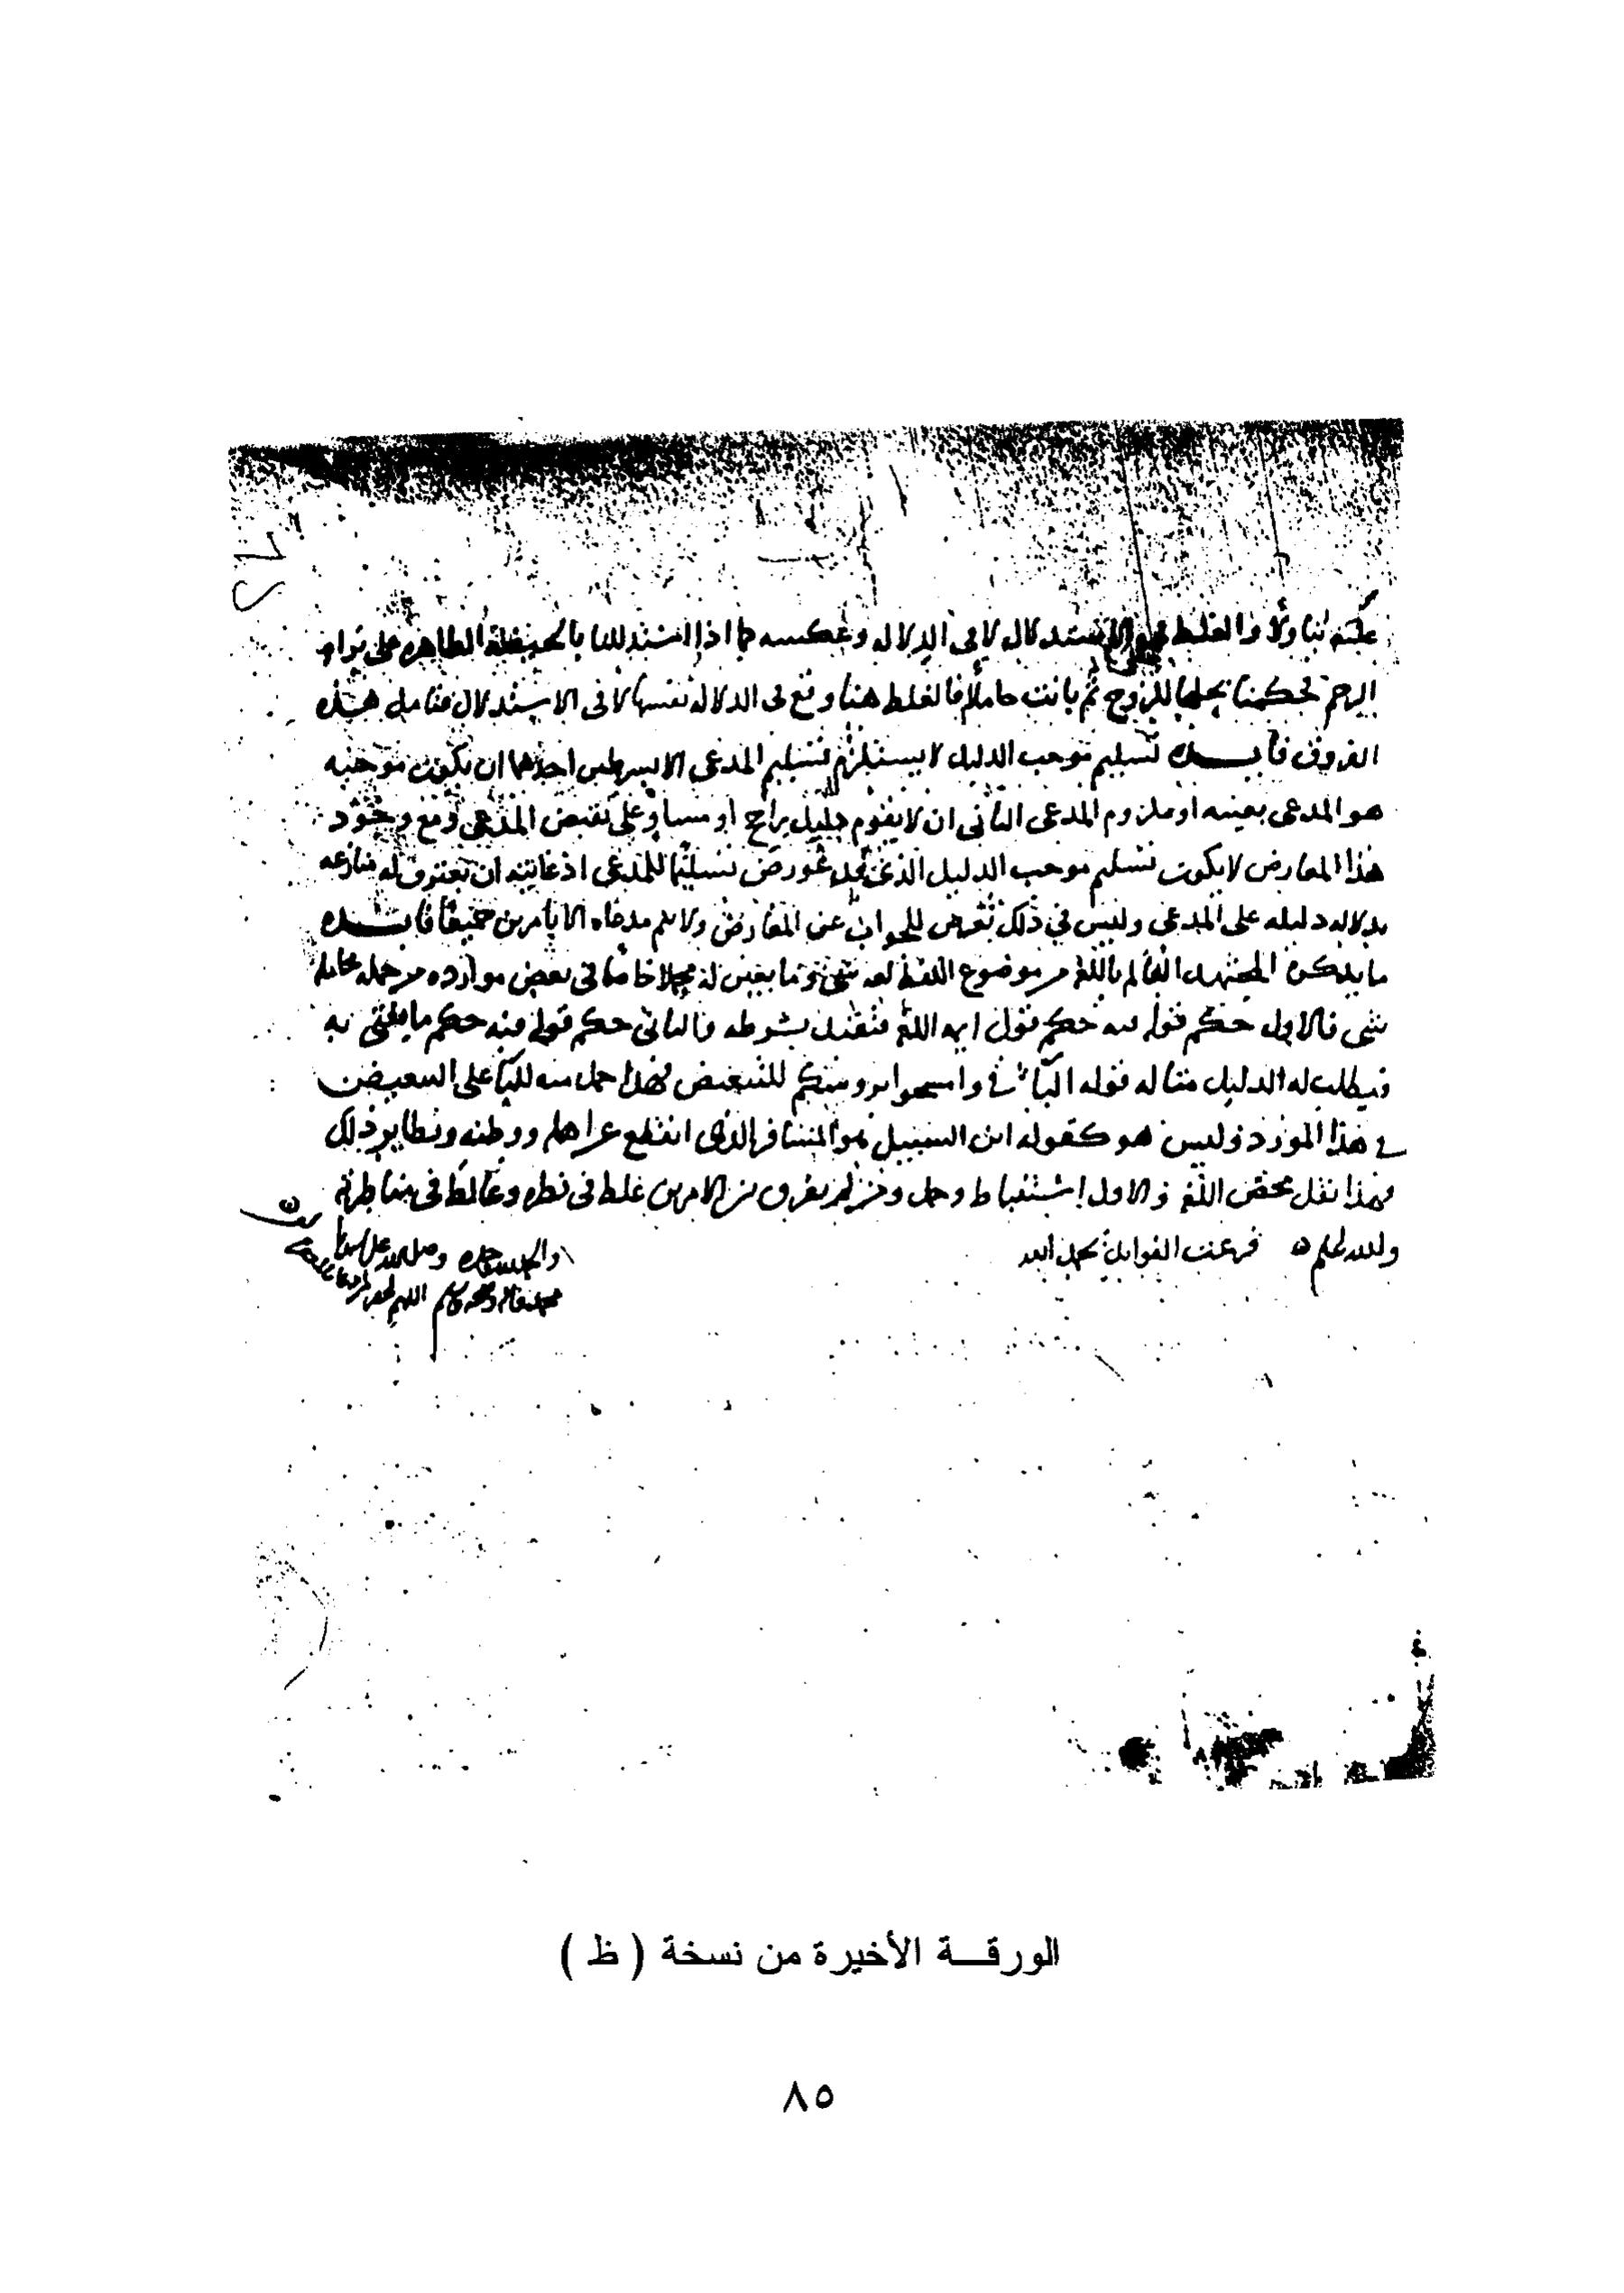 عليه بناولا والغلط في الاستدلال لا في الدلالة وعكسه كما اذا استدللنا بالحيضة الظاهره على براه
الرحم فحكمنا بحلها للزوج ثم بانت حاملا فالغلط هنا وقع في الدلالة نفسها لا في الاستدلال فتامل هذه
الفروق فايـــده تسليم موجب الدليل لا يستلزم تسليم المدعى الا بشرطين احدهما ان يكون موجبه
هو المدعى بعينه او ملزوم المدعى الثاني ان لا يقوم دليل راجح او مساو على نقيض المدعى ومع وجود
هذا المعارض لا يكون تسليم موجب الدليل الذي قد عورض تسليما للمدعى اذ غايته ان يعترف له منازعه
بدلاله دليله على المدعى وليس في ذلك تعرض للجواب عن المعارض ولا يتم مدعاه الا بامرين جميعا فايـــده
ما يذكره المجتهد العالم باللغه من موضوع اللفظ لغه شي وما يعين له محملا خاصا في بعض موارده من جمله محامله
شي فالاول حكم قوله فيه حكم قول ايمه اللغه فيقبل بشرطه والثاني حكم قوله فيه حكم ما يفتي به
فيطلب له الدليل مثاله قوله البا في وامسحوا بروسكم للتبعيض فهذا حمل منه للبا على التبعيض
في هذا المورد وليس هو كقوله ابن السبيل هو المسافر الذي انقطع عن اهله ووطنه ونظاير ذلك
فهذا نقل محض اللغه والاول استنباط وحمل ومن لم يفرق بين الامرين غلط في نظره وغالط في مناظرته
والله اعلم فرغت الفوايد بحمد الله
والحمد لله وحده وصلى الله على سيدنا
محمد واله وصحبه وسلم اللهم اغفر
الورقـة الأخيرة من نسخة ( ظ )
٨٥